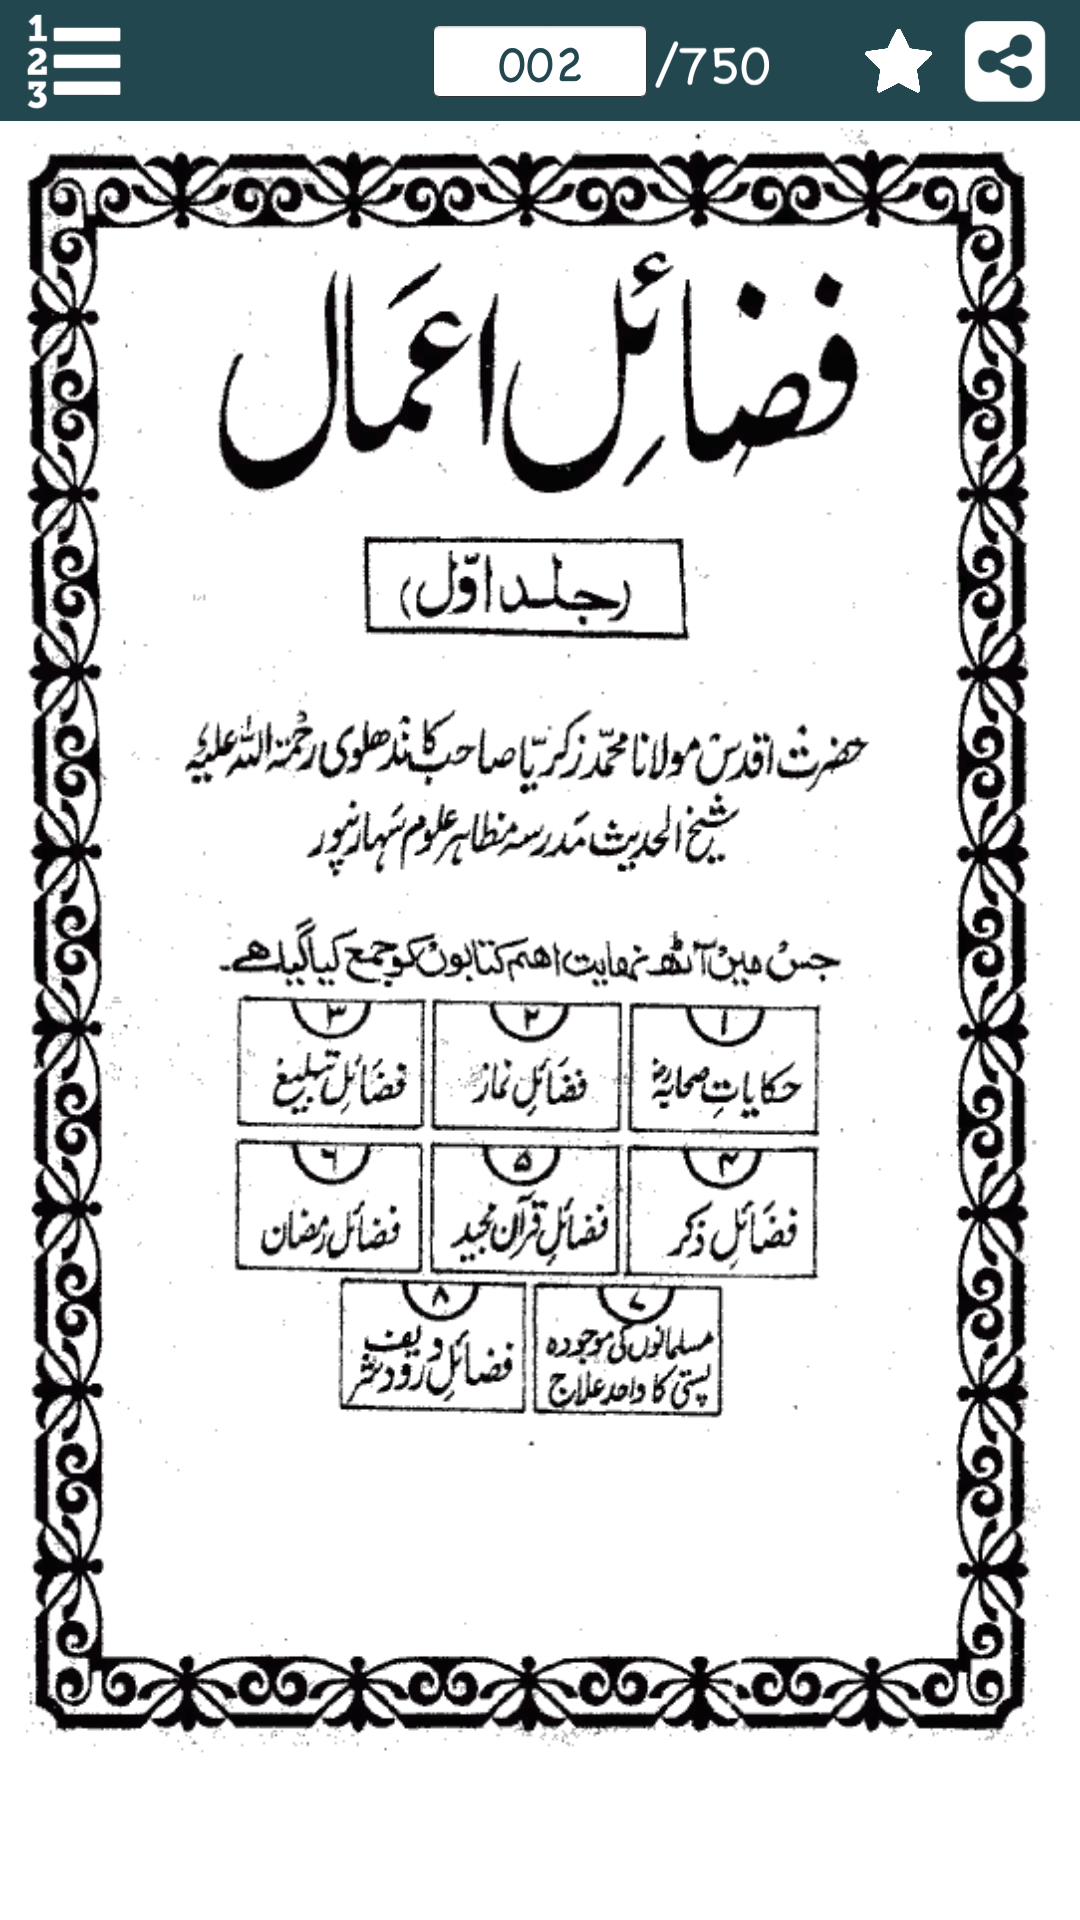 1
2
3
002 /750
فضائلِ اعمال
(جلد اوّل)
حضرت اقدس مولانا محمّد زکریّا صاحب کاندھلوی رحمۃ اللہ علیہ
شیخ الحدیث مدرسہ مظاہر علوم سہارنپور
جس میں آٹھ نہایت اہم کتابوں کو جمع کیا گیا ہے۔
۱ ۲ ۳
حکایاتِ صحابہؓ فضائلِ نماز فضائلِ تبلیغ
۴ ۵ ۶
فضائلِ ذکر فضائلِ قرآن مجید فضائل رمضان
۷ ۸
مسلمانوں کی موجودہ پستی کا واحد علاج
فضائلِ درود شریف